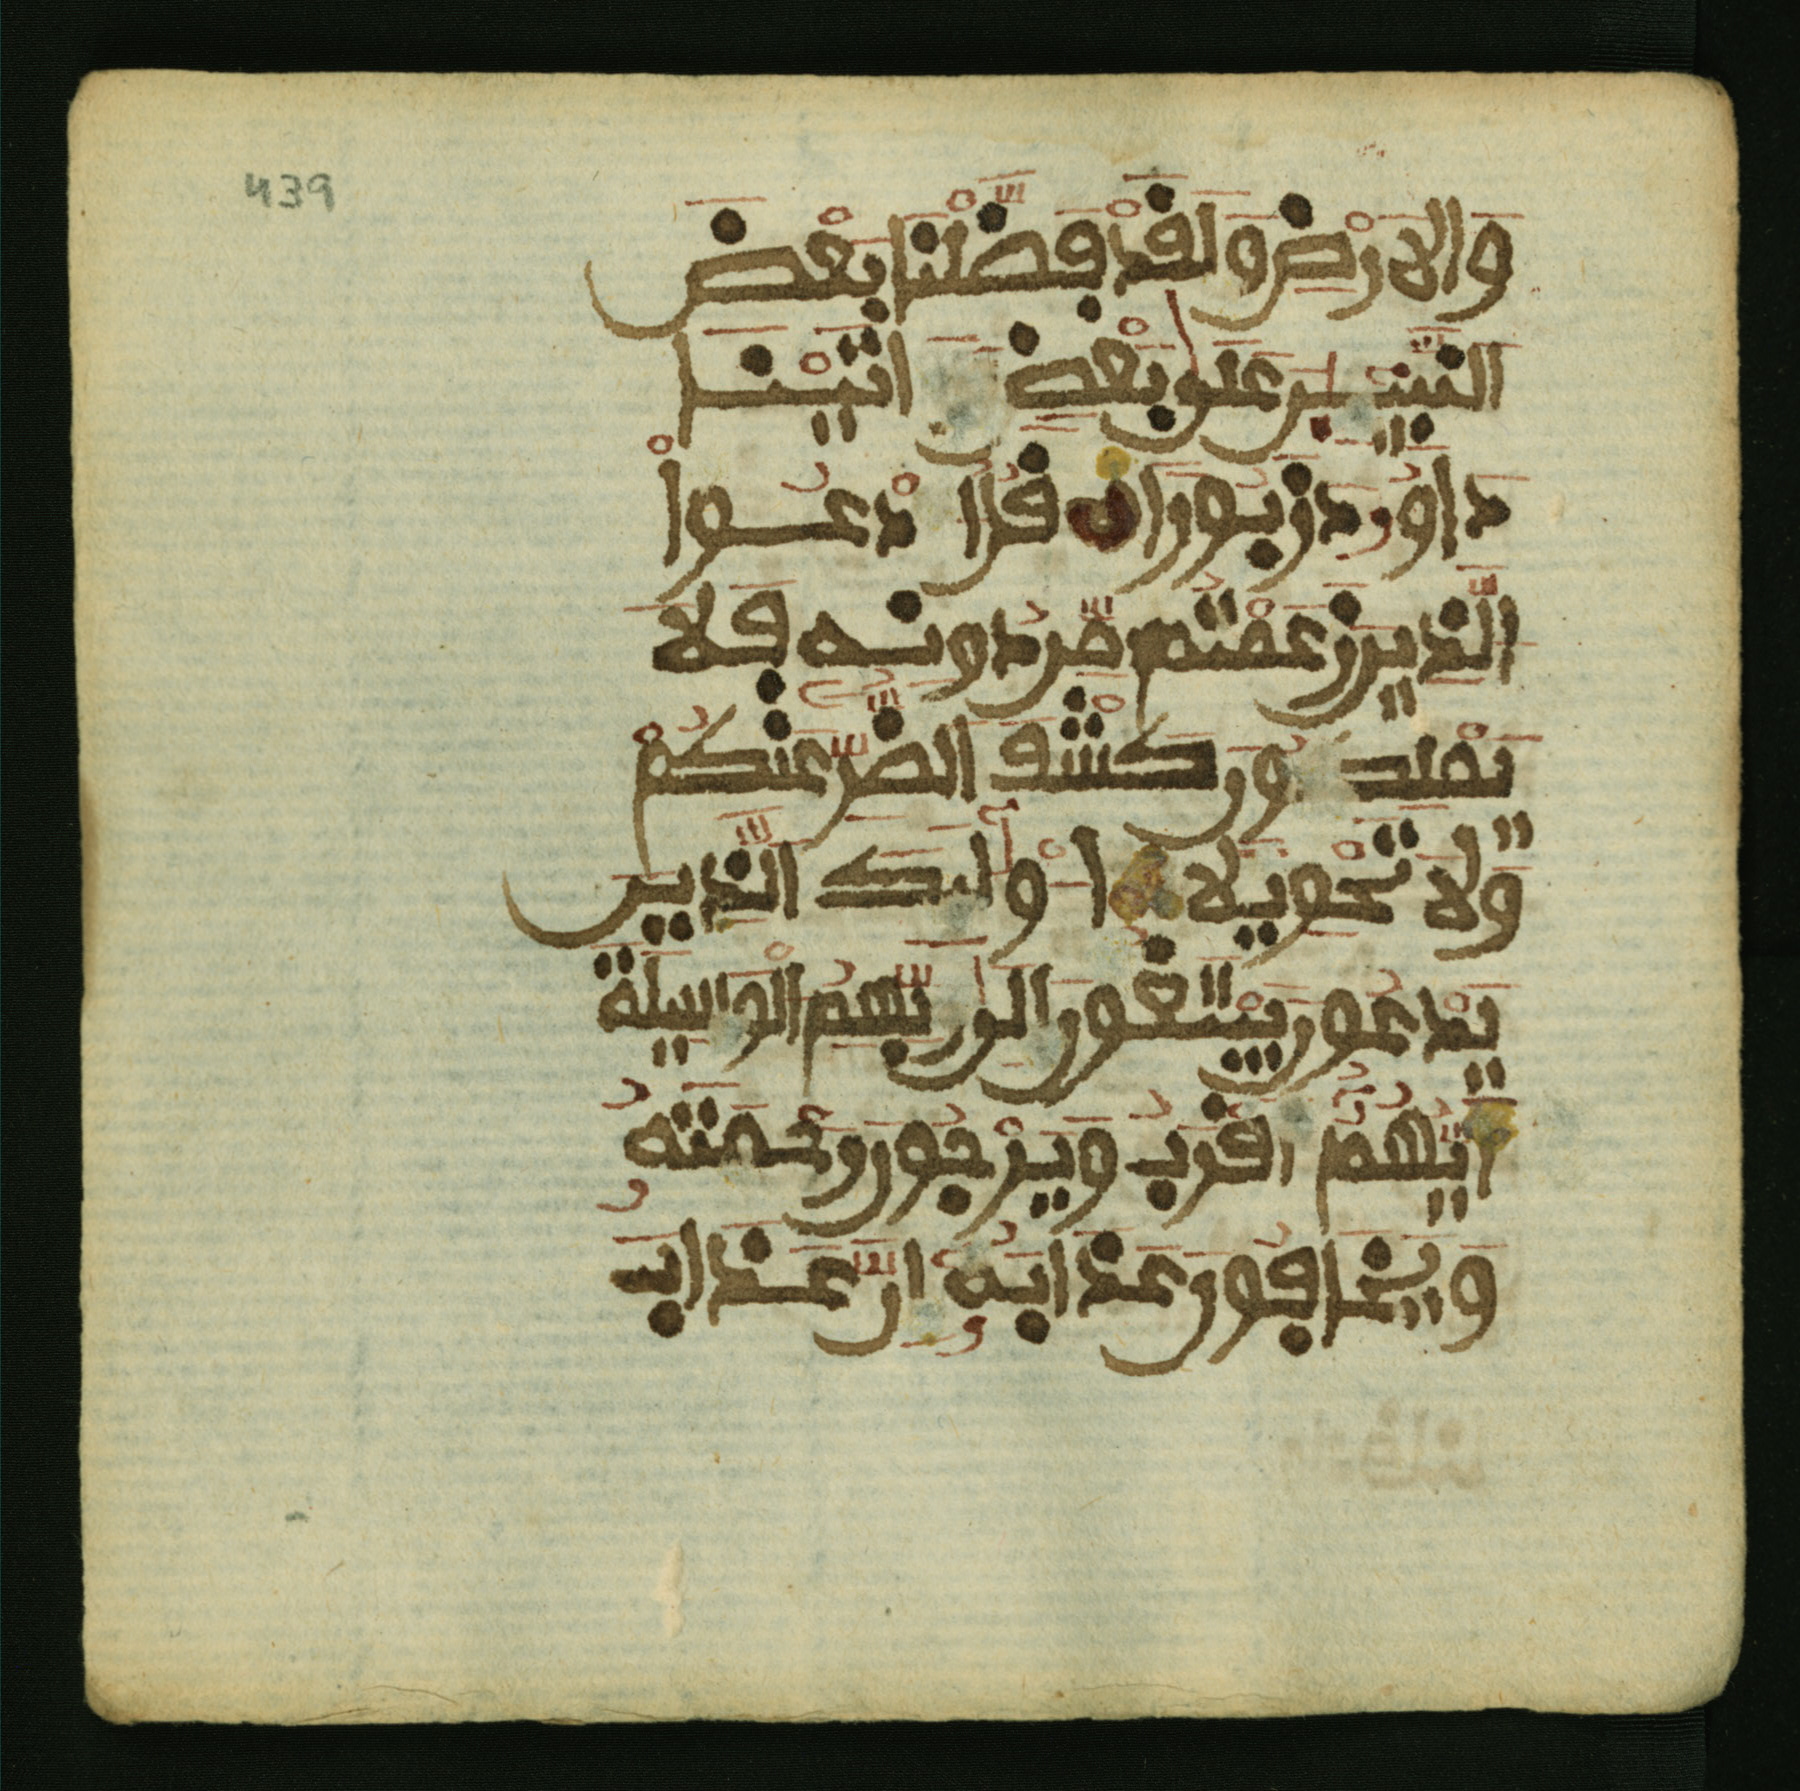 439
والارض ولقد فضلنا بعض
النبيين على بعض واتينا
داوود زبورا قل ادعوا
الذين زعمتم من دونه فلا
يملكون كشف الضر عنكم
ولا تحويلا اولئك الذين
يدعون يبتغون الى ربهم الوسيلة
ايهم اقرب ويرجون رحمته
ويخافون عذابه ان عذاب